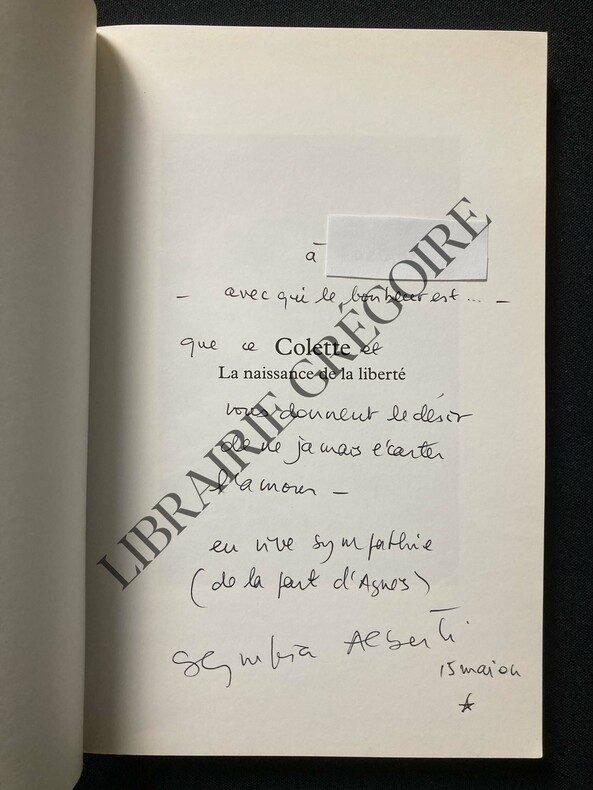 à
— avec qui le bonheur est ... —
que ce Colette et
La naissance de la liberté
vous donnent le désir
de ne jamais écarter
l'amour —
en vive sympathie
(de la part d'Agnes)
Alberti
15 mai 04
LIBRAIRIE GRÉGOIRE